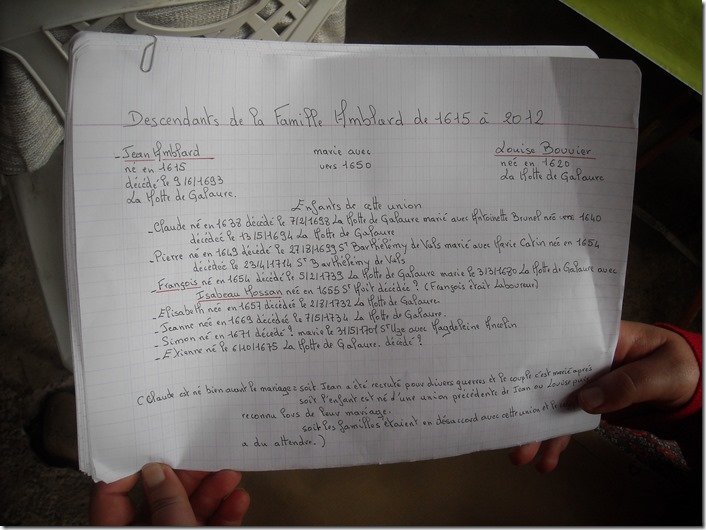 Descendants de la Famille Amblard de 1615 à 2012
- Jean Amblard marie avec Louise Bouvier
né en 1615 vers 1650 neé en 1620
décédé le 9/6/1693 La Motte de Galaure
La Motte de Galaure.
Enfants de cette union
- Claude né en 1638 décédé le 7/2/1698 La Motte de Galaure marié avec Antoinette Brunel né vers 1640
décédée le 13/5/1694 La Motte de Galaure
- Pierre né en 1649 décédé le 27/8/1699 St Barthélémy de Vals marié avec Marie Catin née en 1654
décédée le 23/4/1714 St Barthélémy de Vals
- François né en 1654 décédé le 5/2/1739 La Motte de Galaure marie le 3/3/1680 La Motte de Galaure avec
Isabeau Mossan née en 1655 St décédée ? (François était Laboureur)
- Elisabeth née en 1657 décédée le 2/8/1732 La Motte de Galaure.
- Jeanne née en 1669 décédée le 7/5/1734 La Motte de Galaure.
- Simon né en 1671 décédé ? marie le 31/5/1701 St Uze avec Magdeleine
- Etienne né le 6/10/1675 La Motte de Galaure. décédé ?
(Claude est né bien avant le mariage = soit Jean a été recruté pour divers guerres et le couple c'est marié après
soit l'enfant est né d'une union précédente de Jean ou Louise puis
reconnu lors de leur mariage.
soit les familles étaient en désaccord avec cette union et le
a du attendre.)